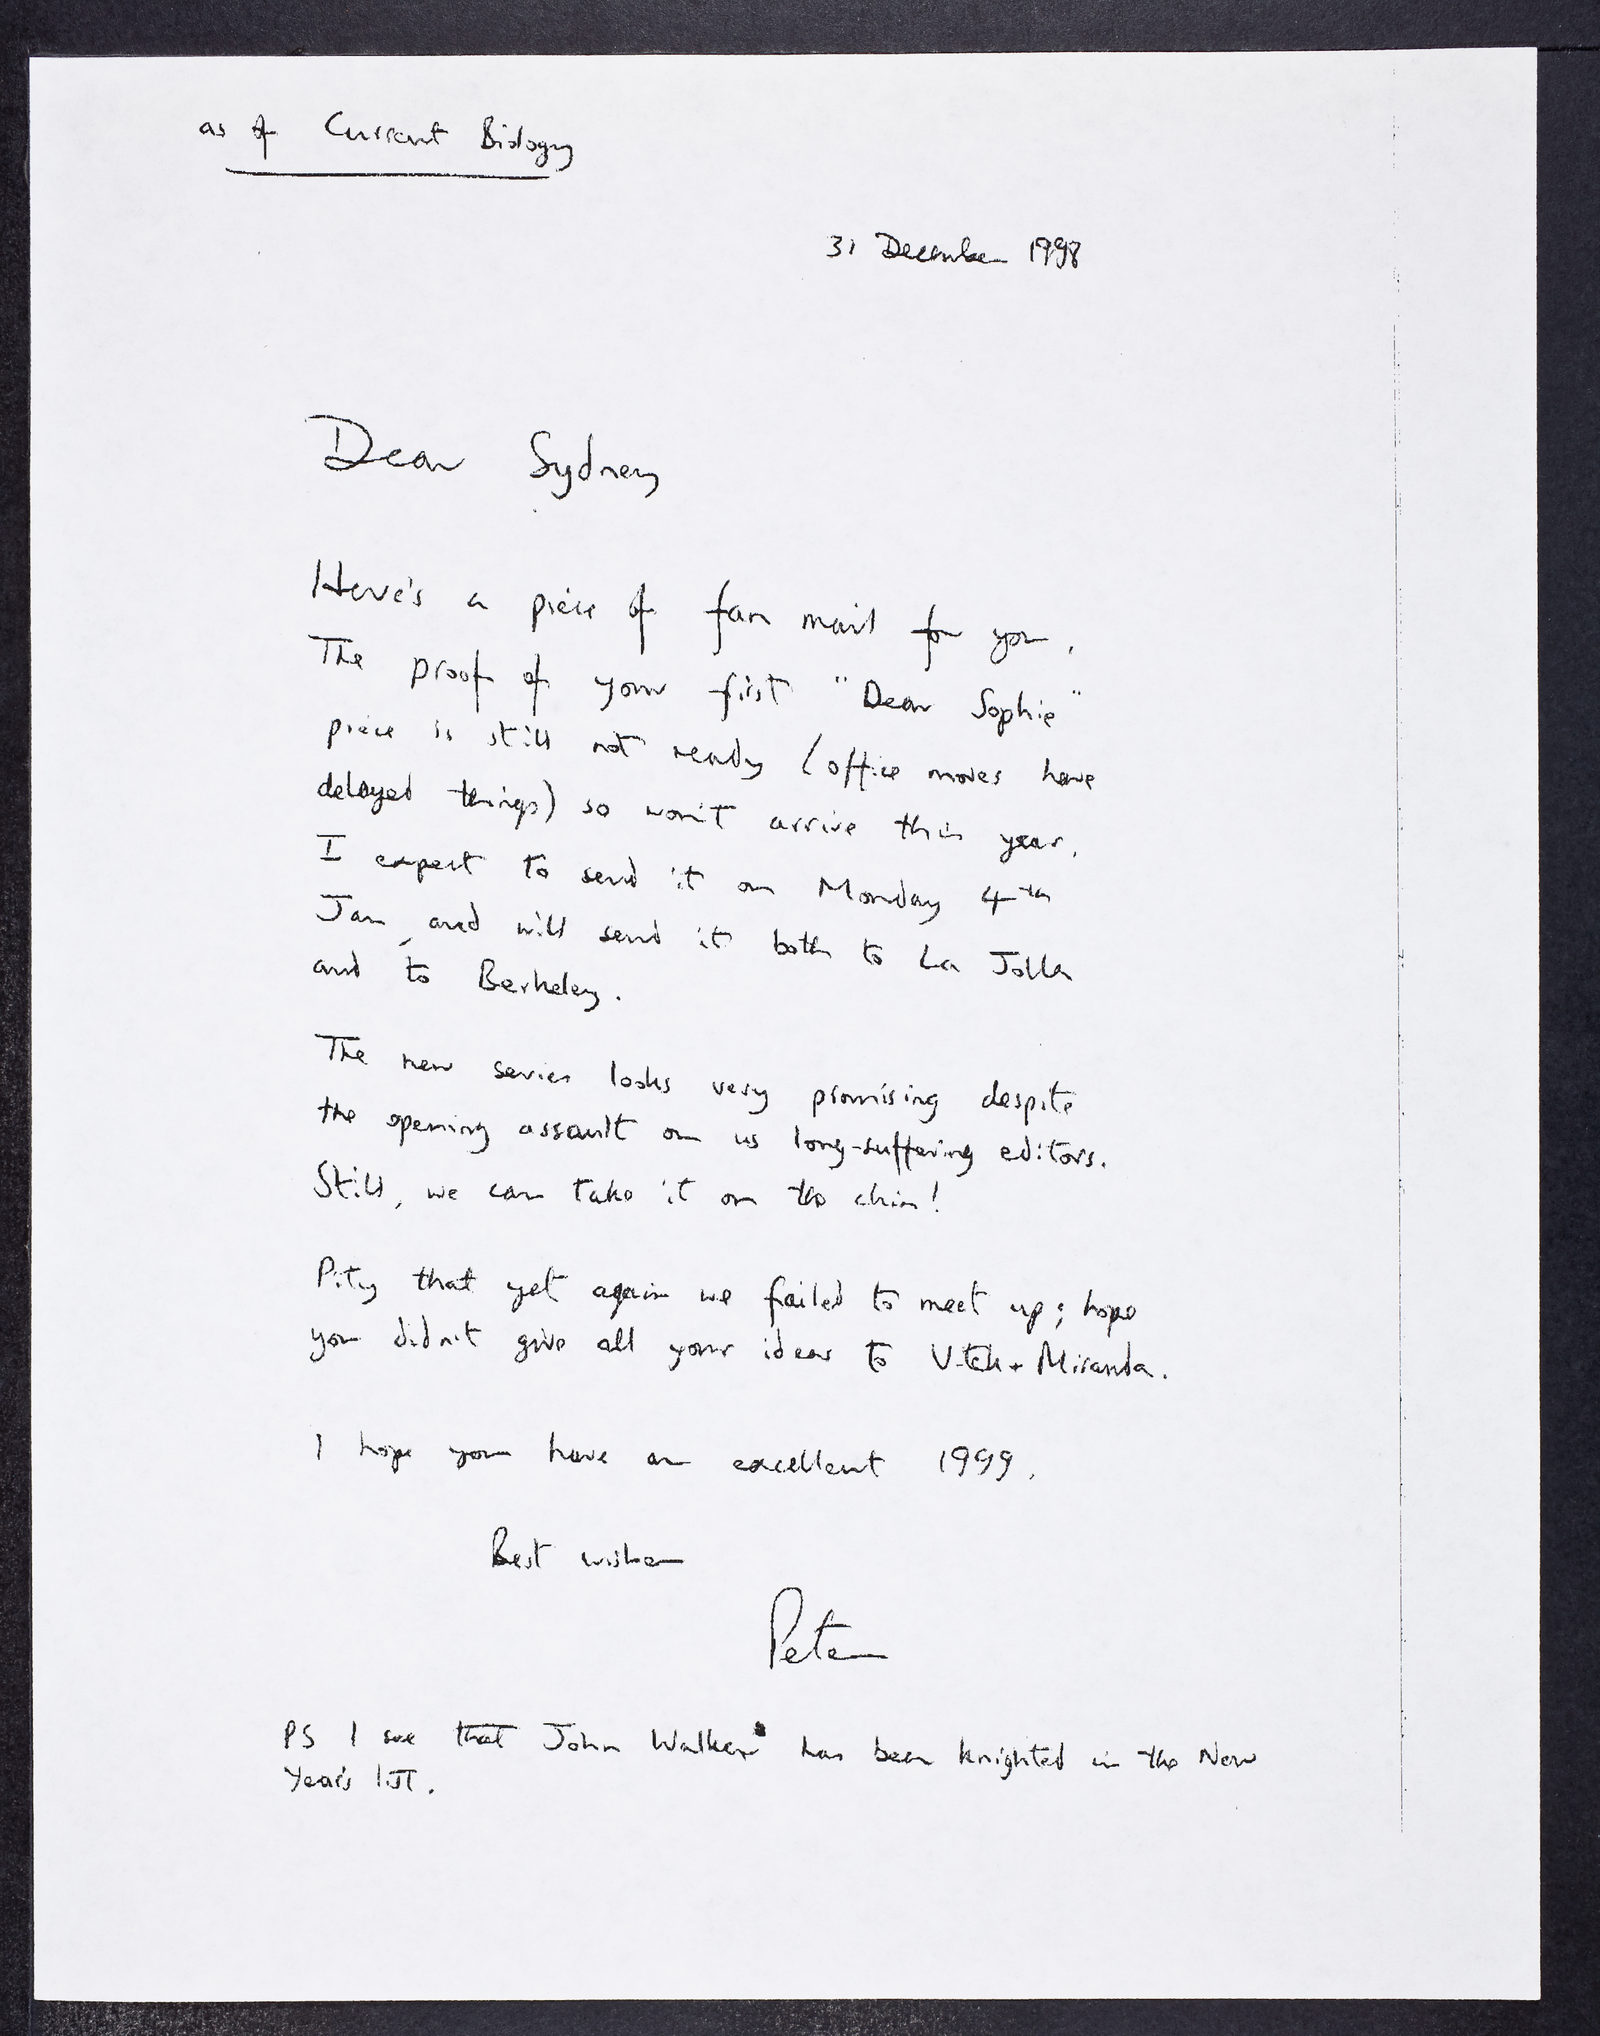 as of Current Biology
31 December 1998
Dear Sydney
Here's a piece of fan mail for you.
The proof of your first "Dear Sophie"
piece is still not ready (office moves have
delayed things) so won't arrive this year.
I expect to send it on Monday 4th
Jan, and will send it both to La Jolla
and to Berkeley.
The new series looks very promising despite
the opening assault on us long-suffering editors.
Still, we can take it on the chin!
Pity that yet again we failed to meet up; hope
you didn't give all your ideas to Vitek + Miranda.
I hope you have an excellent 1999.
Best wishes
Peter
PS I see that John Walker has been knighted in the New
Year's list.